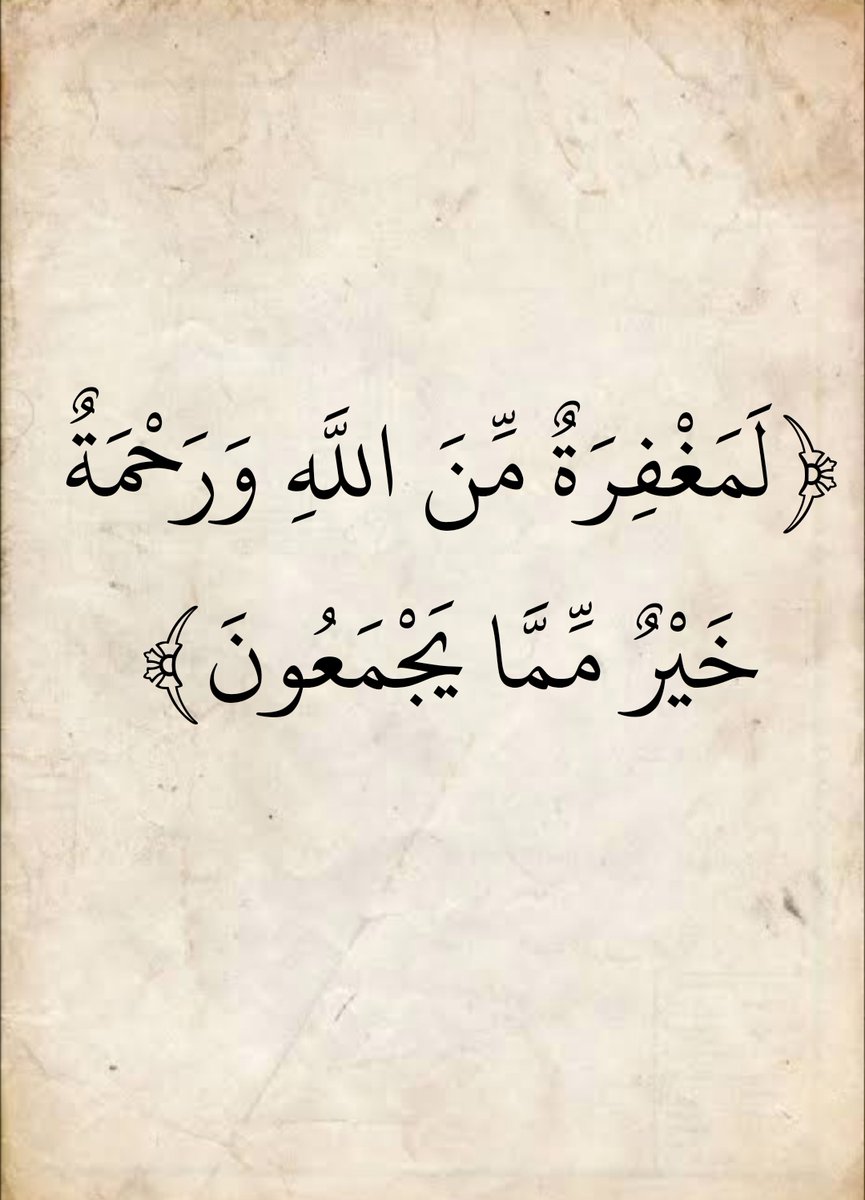 ﴿لَمَغْفِرَةٌ مِّنَ اللَّهِ وَرَحْمَةٌ
خَيْرٌ مِّمَّا يَجْمَعُونَ﴾